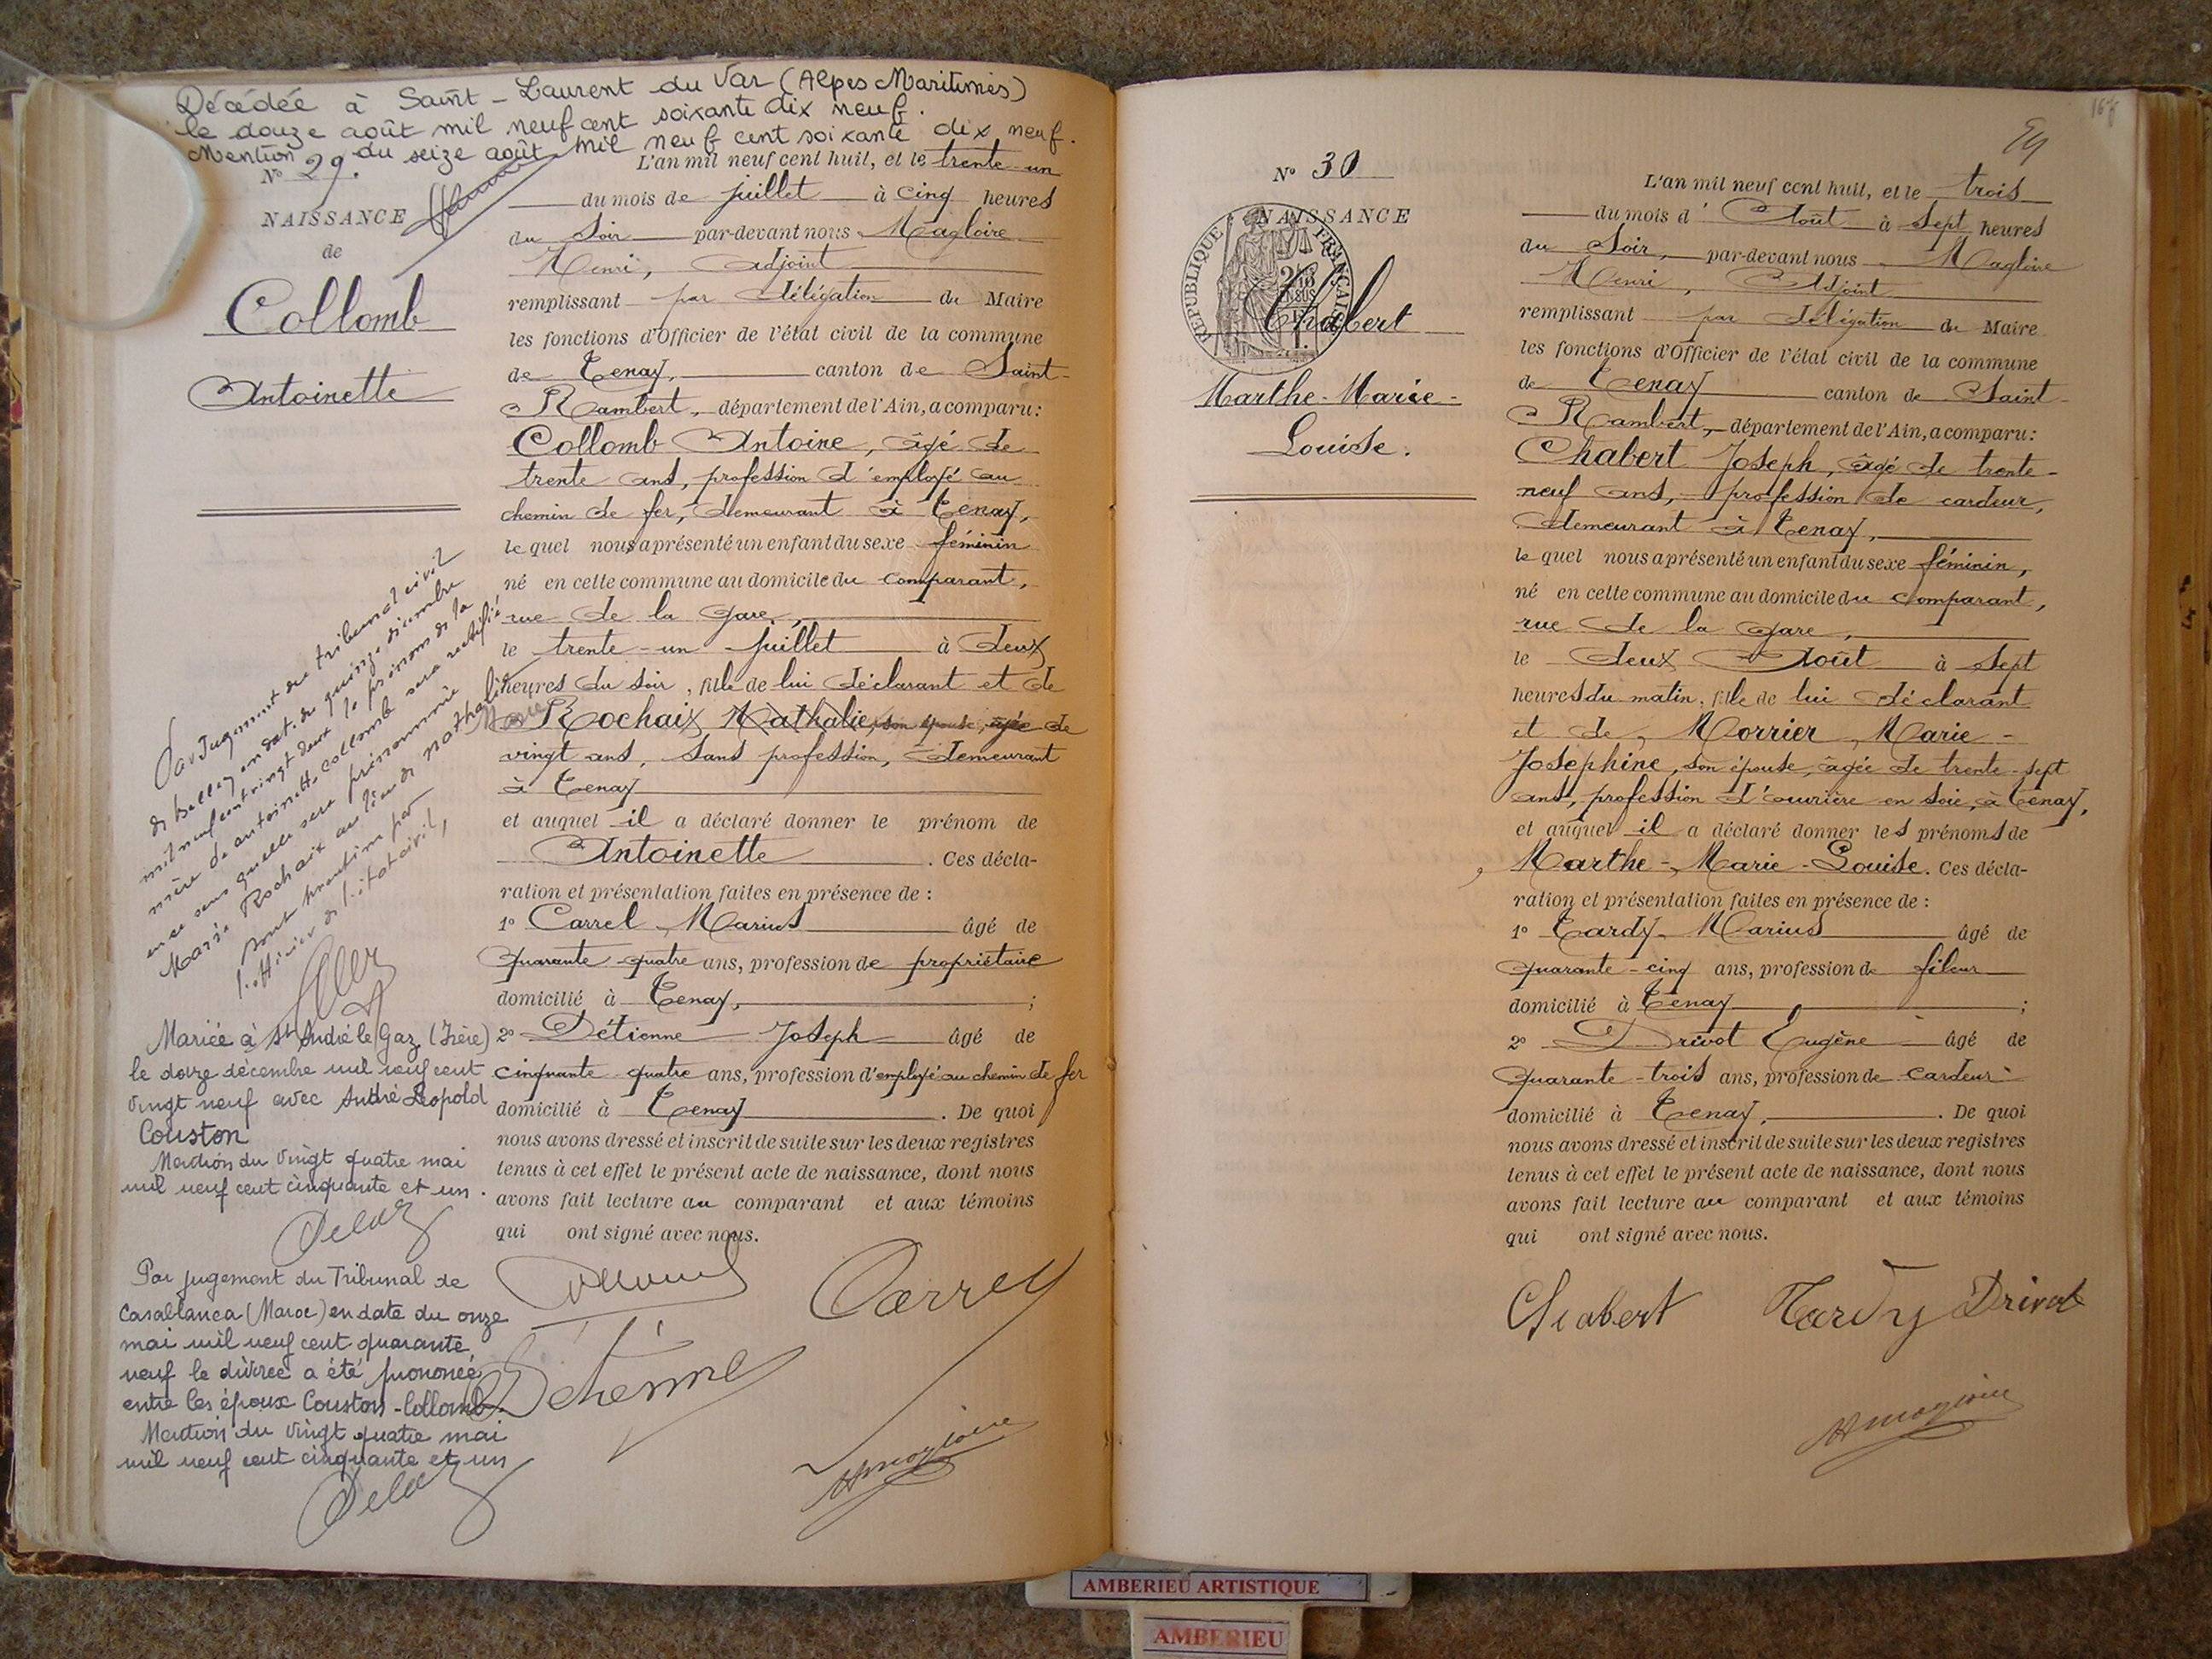 Décédée à Saint-Laurent du Var (Alpes Maritimes)
le douze août mil neuf cent soixante dix neuf.
Mention du seize août mil neuf cent soixante dix neuf.
N° 29.
NAISSANCE
de
Collomb
Antoinette
Par Jugement du tribunal civil
de Belley en date du quinze décembre
mil neuf cent vingt deux le prénom de la
mère de antoinette collomb sera rectifié
en ce sens quelle sera prénommée
Marie Rochaix au lieu de nathalie
pour mention par
l'officier de l'état civil,
Mariée à St André le Gaz (Isère)
le douze décembre mil neuf cent
vingt neuf avec André Léopold
Couston
Mention du vingt quatre mai
mil neuf cent cinquante et un.
Delaz
Par jugement du Tribunal de
Casablanca (Maroc) en date du onze
mai mil neuf cent quarante
neuf le divorce a été prononcé
entre les époux Couston-Collomb.
Mention du vingt quatre mai
mil neuf cent cinquante et un
Delaz
L'an mil neuf cent huit, et le trente-un
du mois de juillet à cinq heures
du Soir par-devant nous Magloire
Henri, Adjoint
remplissant par délégation du Maire
les fonctions d'Officier de l'état civil de la commune
de Tenay, canton de Saint-
Rambert, département de l'Ain, a comparu:
Collomb Antoine, âgé de
trente ans, profession d'employé au
chemin de fer, demeurant à Tenay,
lequel nous a présenté un enfant du sexe féminin
né en cette commune au domicile du comparant,
rue de la Gare,
le trente-un juillet à deux
heures du soir, fille de lui déclarant et de
Marie Rochaix Nathalie, son épouse, âgée de
vingt ans, sans profession, demeurant
à Tenay
et auquel il a déclaré donner le prénom de
Antoinette. Ces décla-
ration et présentation faites en présence de :
1° Carrel Marius âgé de
quarante-quatre ans, profession de propriétaire
domicilié à Tenay, ;
2° Détienne Joseph âgé de
cinquante-quatre ans, profession d'employé au chemin de fer
domicilié à Tenay. De quoi
nous avons dressé et inscrit de suite sur les deux registres
tenus à cet effet le présent acte de naissance, dont nous
avons fait lecture au comparant et aux témoins
qui ont signé avec nous.
Collomb Carrel
Détienne
H Magloire
167
59
N° 30
NAISSANCE
REPUBLIQUE FRANÇAISE
Chabert
Marthe-Marie-
Louise.
L'an mil neuf cent huit, et le trois
du mois d'Août à sept heures
du Soir, par-devant nous Magloire
Henri, Adjoint
remplissant par délégation du Maire
les fonctions d'Officier de l'état civil de la commune
de Tenay canton de Saint-
Rambert, département de l'Ain, a comparu:
Chabert Joseph, âgé de trente-
neuf ans, profession de cardeur,
demeurant à Tenay,
lequel nous a présenté un enfant du sexe féminin,
né en cette commune au domicile du comparant,
rue de la Gare,
le deux Août à sept
heures du matin, fille de lui déclarant
et de Morrier Marie-
Josephine, son épouse, âgée de trente-sept
ans, profession d'ouvrière en soie, à Tenay,
et auquel il a déclaré donner les prénoms de
Marthe-Marie-Louise. Ces décla-
ration et présentation faites en présence de :
1° Tardy Marius âgé de
quarante-cinq ans, profession de fileur
domicilié à Tenay ;
2° Drivot Eugène âgé de
quarante-trois ans, profession de cardeur
domicilié à Tenay,. De quoi
nous avons dressé et inscrit de suite sur les deux registres
tenus à cet effet le présent acte de naissance, dont nous
avons fait lecture au comparant et aux témoins
qui ont signé avec nous.
Chabert Tardy Drivot
H Magloire
AMBERIEU ARTISTIQUE
AMBERIEU